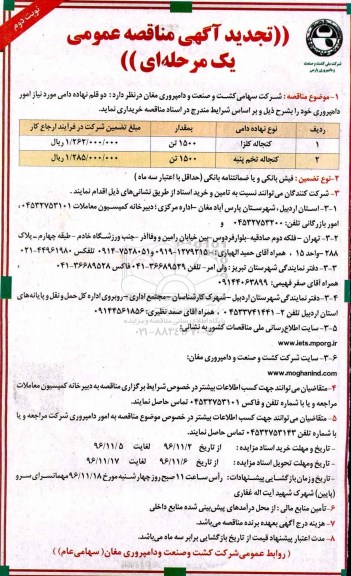 نوبت دوم
((تجدید آگهی مناقصه عمومی
یک مرحله‌ای))
شرکت ملی کشت و صنعت و دامپروری پارس
۱- موضوع مناقصه : شرکت سهامی کشت و صنعت و دامپروری مغان درنظر دارد : دو قلم نهاده دامی مورد نیاز امور
دامپروری خود را بشرح ذیل و بر اساس شرایط مندرج در اسناد مناقصه خریداری نماید.
ردیف نوع نهاده دامی بمقدار مبلغ تضمین شرکت در فرآیند ارجاع کار
۱ کنجاله کلزا ۱۵۰۰ تن ۱/۲۶۲/۰۰۰/۰۰۰ ریال
۲ کنجاله تخم پنبه ۱۵۰۰ تن ۱/۲۸۵/۰۰۰/۰۰۰ ریال
۲- نوع تضمین : فیش بانکی و یا ضمانتنامه بانکی (حداقل با اعتبار سه ماه)
۳- شرکت کنندگان می‌توانند نسبت به تامین و خرید اسناد از طریق نشانی‌های ذیل اقدام نمایند.
۳-۱- استان اردبیل، شهرستان پارس آباد مغان - اداره مرکزی ؛ دبیرخانه کمیسیون معاملات ۰۴۵۳۲۷۵۳۱۰۱،
امور بازرگانی تلفن: ۰۴۵۳۲۷۵۳۲۰۰ و
۳-۲- تهران - فلکه دوم صادقیه - بلوار فردوس - بین خیابان رامین و وفا آذر - جنب ورزشگاه خادم - طبقه چهارم - پلاک
۲۸۸- واحد ۱۵ ، همراه آقای حمید الهیاری: ۰۹۱۹۰۱۲۷۹۲۱۵-۰۹۱۴۰۷۵۲۸۰۵۱ تلفکس ۴۴۹۶۱۹۸۰-۰۲۱
۳-۳- دفتر نمایندگی شهرستان تبریز : ولی امر - تلفن ۳۶۶۸۹۵۳۹-۰۴۱ فاکس ۳۶۶۸۹۵۲۸-۰۴۱
همراه آقای صفر فهیمی: ۰۹۱۴۴۰۶۳۸۹۹
۳-۴- دفتر نمایندگی شهرستان اردبیل - شهرک کارشناسان - مجتمع اداری - روبروی اداره کل حمل و نقل و پایانه‌های
استان اردبیل تلفن ۲-۰۴۵۳۳۷۴۱۴۴۱ ، همراه آقای صمد نظیری: ۰۹۱۴۴۵۶۱۸۵۶
۳-۵- سایت اطلاع رسانی ملی مناقصات کشور به نشانی:
www.iets.mporg.ir
۳-۶- سایت شرکت کشت و صنعت و دامپروری مغان:
www.moghanind.com
۴- متقاضیان می‌توانند جهت کسب اطلاعات بیشتر در خصوص شرایط برگزاری مناقصه به دبیرخانه کمیسیون معاملات
مراجعه و یا با شماره تلفن و فاکس ۰۴۵۳۲۷۵۳۱۰۱ تماس حاصل نمایند.
۵- متقاضیان می‌توانند جهت کسب اطلاعات بیشتر در خصوص موضوع مناقصه به امور دامپروری شرکت مراجعه و یا
با شماره تلفن ۰۴۵۳۲۷۵۳۱۴۳ تماس حاصل نمایند.
- تاریخ و مهلت خرید اسناد مزایده : از تاریخ ۹۶/۱۱/۲ لغایت ۹۶/۱۱/۵
- تاریخ و مهلت تحویل اسناد مزایده : از تاریخ ۹۶/۱۱/۶ لغایت ۹۶/۱۱/۱۷
- تاریخ و زمان بازگشایی پیشنهادات: رأس ساعت ۱۱ صبح روز چهارشنبه مورخ ۹۶/۱۱/۱۸ مهمانسرای سرو
(پایین) شهرک شهید آیت اله غفاری
۶- تأمین منابع مالی : از محل درآمدهای پیش‌بینی شده منابع داخلی
۷- هزینه درج آگهی بعهده برنده مناقصه می‌باشد.
۸- مدت اعتبار پیشنهاد قیمت از تاریخ بازگشایی برابر سه ماه می‌باشد.
((روابط عمومی شرکت کشت و صنعت و دامپروری مغان (سهامی عام)))